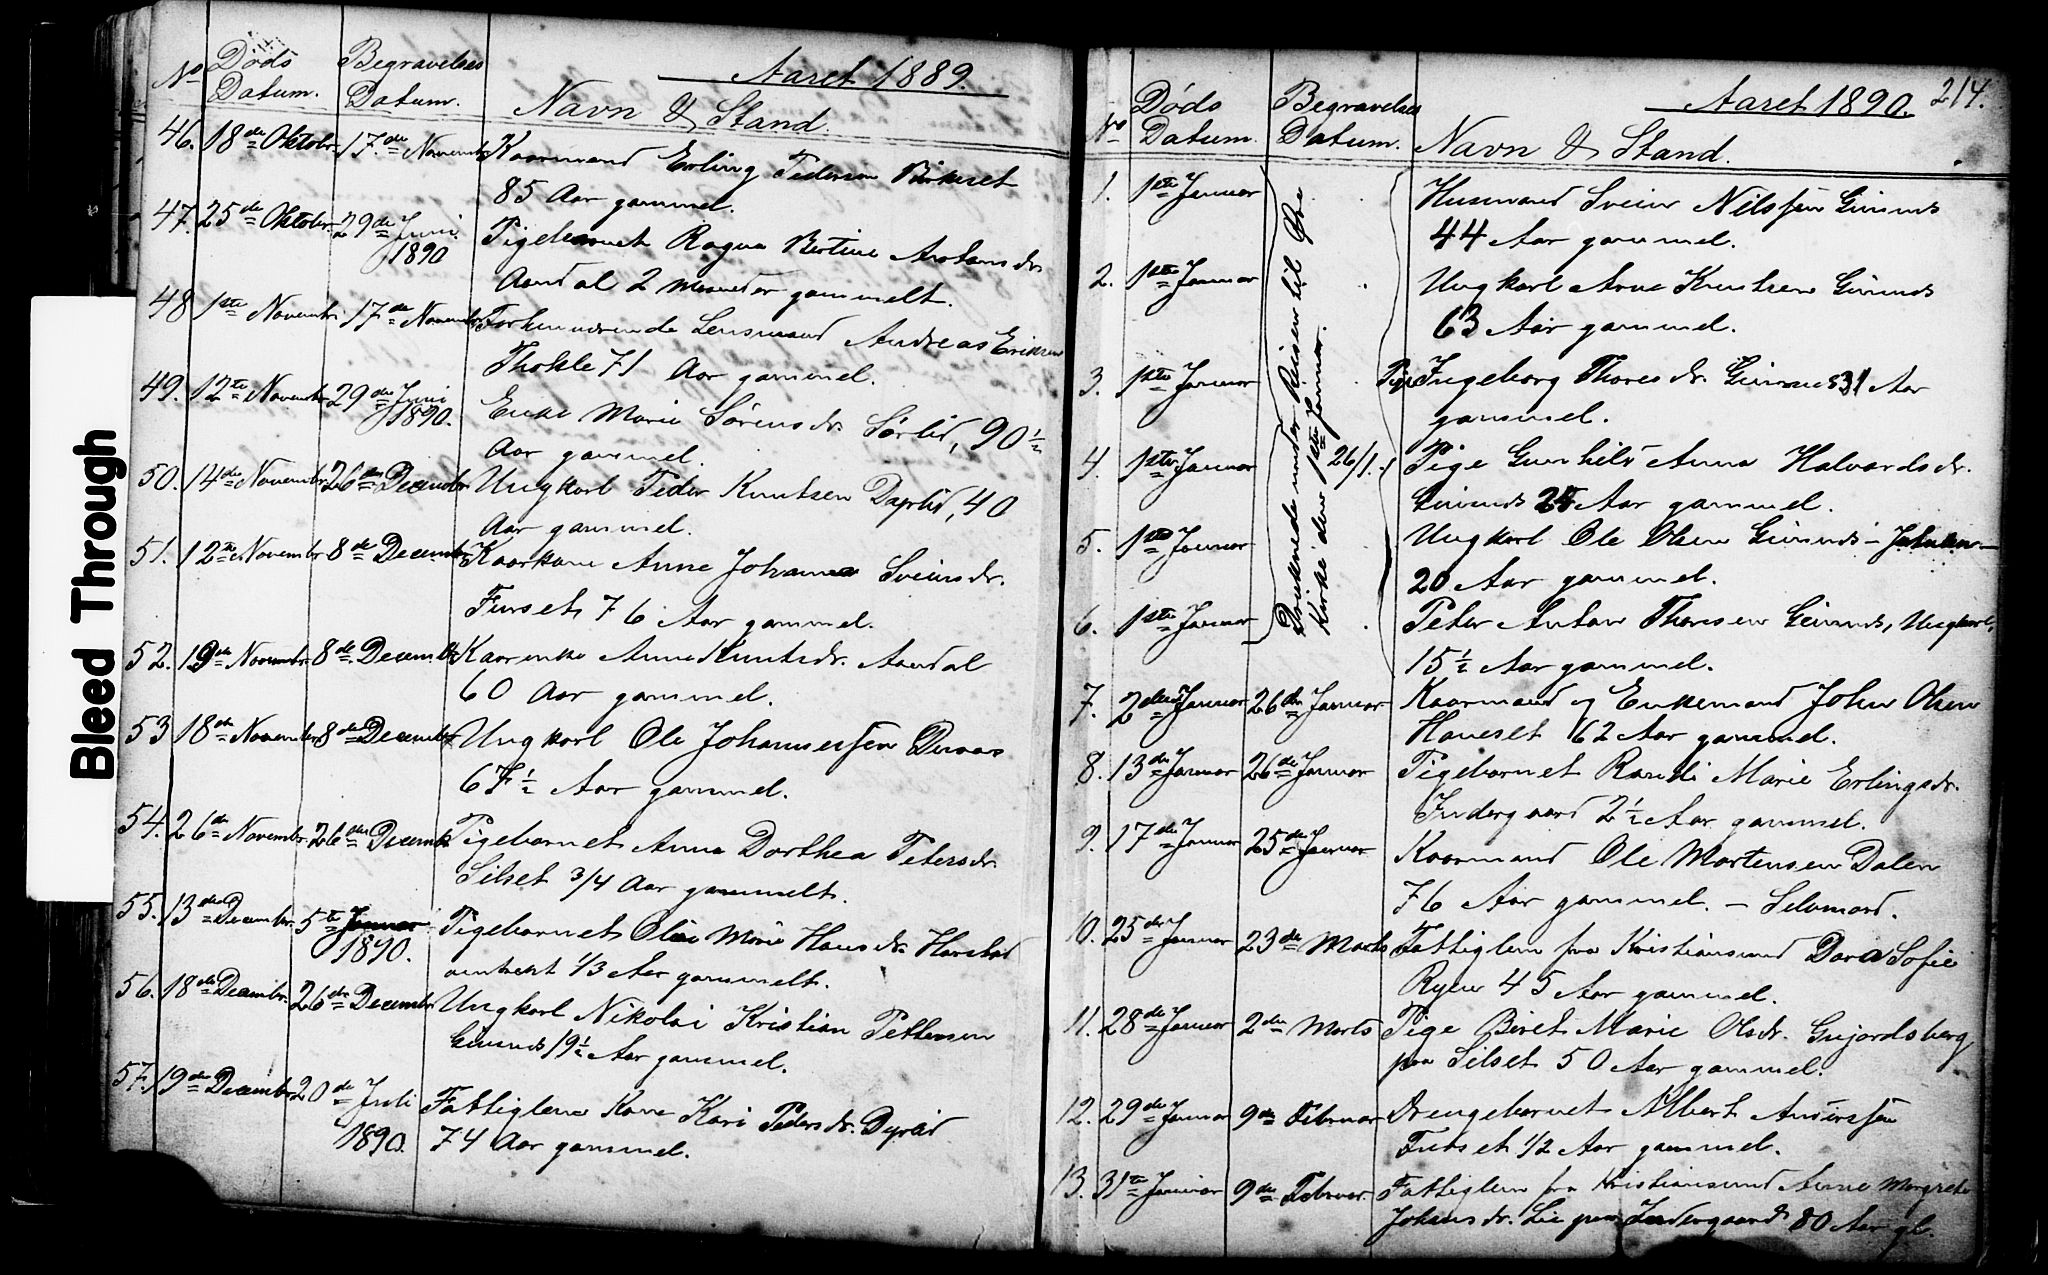 Bleed Through
Aaret 1889.
No Døds Datum. Begravelses Datum. Navn & Stand.
46. 18de Oktobr. 17de Novembr. Kaarmand Erling Pedersen Birkeset
85 Aar gammel.
47. 25de Oktobr. 29de Juni 1890 Pigebarnet Ragna Bertine Antonsdr.
Aandal 2 Maaneder gammelt.
48 1ste Novembr. 17de Novembr. Forhenværende Lensmand Andreas Eriksen
Thokle 71 Aar gammel.
49. 12te Novembr. 29de Juni 1890. Enke Marie Sørensdr. Sørlid, 90½
Aar gammel.
50. 14de Novembr. 26de Decembr. Ungkarl Peder Knutsen Dyrlid, 40
Aar gammel.
51. 12te Novembr. 8de Decembr. Kaarkone Anne Johanna Sveinsdr.
Furset 76 Aar gammel.
52. 19de Novembr. 8de Decembr. Kaarenke Anne Knutsdr. Aandal
60 Aar gammel.
53 18de Novembr. 8de Decembr. Ungkarl Ole Johannessen
67½ Aar gammel.
54. 26de Novembr. 26de Decembr. Pigebarnet Anne Dorthea Petersdr.
Silset 3/4 Aar gammelt.
55. 13de Decembr. 5te Januar 1890. Pigebarnet Marie Hansdr. Harstad
omtrent 1/3 Aar gammelt.
56. 18de Decembr. 26de Decembr. Ungkarl Nikolai Kristian Pettersen
Gimnes 19½ Aar gammel.
57. 19de Decembr. 20de Juli 1890. Fattiglem Kone Kari Pedersdr. Dyrlid
74 Aar gammel.
Aaret 1890. 214.
No Døds Datum. Begravelses Datum. Navn & Stand.
Druknede under Reisen til Øre
Kirke den 1ste Januar.
1. 1ste Januar Husmand Svein Nilssen Gimnes
44 Aar gammel.
2. 1ste Januar Ungkarl Arne Knutsen Gimnes
63 Aar gammel.
3. 1ste Januar Pige Ingeborg Thoresdr. Gimnes 31 Aar
gammel.
4. 1ste Januar 26/1. Pige Gunhild Anna Halvardsdr.
Gimnes 25 Aar gammel.
5. 1ste Januar Ungkarl Ole Olsen Gimnes –
20 Aar gammel.
6. 1ste Januar Peter Anton Thoresen Gimnes, Ungkarl,
15½ Aar gammel.
7. 2den Januar 26de Januar Kaarmand og Enkemand John Olsen
Haveset 62 Aar gammel.
8. 13de Januar 26de Januar Pigebarnet Randi Marie Erlingsdr.
Indergaard 2½ Aar gammel.
9. 17de Januar 25de Januar Kaarmand Ole Mortensen Dalen
76 Aar gammel. – Selvmord.
10. 25de Januar 23de Marts Fattiglem fra Kristiansund Dora Sofie
Ryen 45 Aar gammel.
11. 28de Januar 2den Marts Pige Beret Marie Olsdr. Gujordsberg
paa Silset 50 Aar gammel.
12. 29de Januar 9de Februar Drengebarnet Albert Anderssen
Furset 1/2 Aar gammel.
13. 31te Januar 9de Februar Fattiglem fra Kristiansund Anne Margrete
Johansdr. Lie paa Indergaard 80 Aar gl.